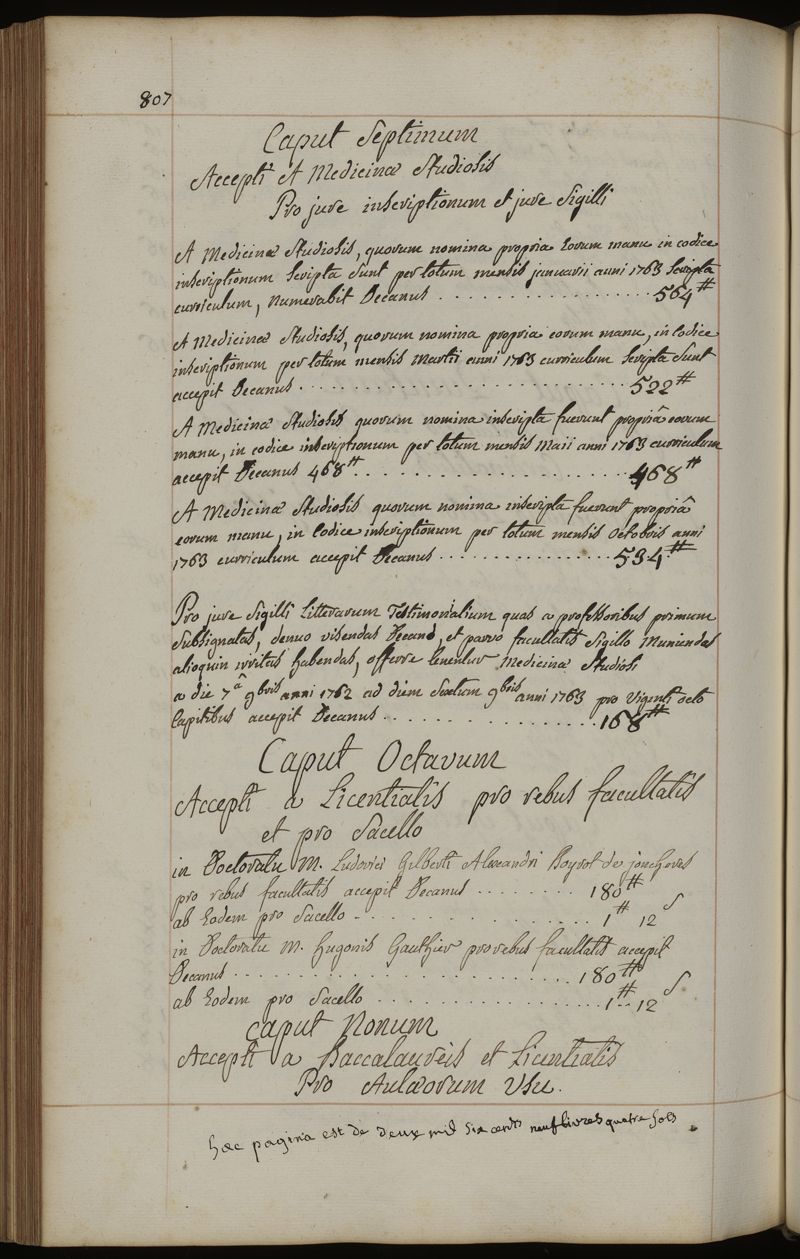 807
Caput Septimum
Accepti A Medicinæ Studiosis
Pro jure inscriptionum et jure Sigilli
A Medicinæ Studiosis, quorum nomina propria Eorum manu in codice
inscriptionum Scripta Sunt per totum mensis januarii anni 1763 Scripta
curriculum, Numerabit Decanus . . . . . . . . . . . . . . . . . 564 ͭͭ#
A Medicinæ Studiosis, quorum nomina propria eorum manu, in Codice
inscriptionum per totum mensis Martii anni 1763 curriculum Scripta Sunt
accepit Decanus . . . . . . . . . . . . . . . . . . . . . . . . . . . 522#
A Medicinæ Studiosis quorum nomina inscripta fuerunt propriâ eorum
manu, in codice inscriptionum per totum mensis Maii anni 1763 curriculum
accepit Decanus 468# . . . . . . . . . . . . . . . . . . . . . 468#
A Medicinæ Studiosis quorum nomina inscripta fuerunt propriâ
eorum manu, in Codice inscriptionum per totum mensis Octobris anni
1763 curriculum accepit Decanus . . . . . . . . . . . . . . . 534#
Pro jure Sigilli Litterarum Testimonialium quas a professoribus primum
Subsignatas, denuo visendas Decano, et parvo facultatis Sigillo Muniendas
alioquin irritas habendas, offerre tenentur Medicinæ Studiosi
a die 7â 9bris anni 1762 ad diem Sextum 9bris anni 1763 pro viginti octo
Capitibus accepit Decanus . . . . . . . . . . . . . . . 168#
Caput Octavum
Accepti a Licentiatis pro rebus facultatis
et pro Sacello
in Doctoratu M. Ludovici Gilberti Alexandri Boyrot de joncheres
pro rebus facultatis accepit Decanus . . . . . . . . 180#
ab Eodem pro Sacello . . . . . . . . . . . . . . . . 1# 12 S
in Doctoratu M. hugonis Gauthier pro rebus facultatis accepit
Decanus . . . . . . . . . . . . . . . . . . . . . . . . . 180#
ab Eodem pro Sacello . . . . . . . . . . . . . . . . . 1# .. 12 S
Caput Nonum
Accepti a Baccalaureis et Licentiatis
Pro Aulæorum Usu.
hæc pagina est de deux mil Six cents neuf livres quatre Sols .